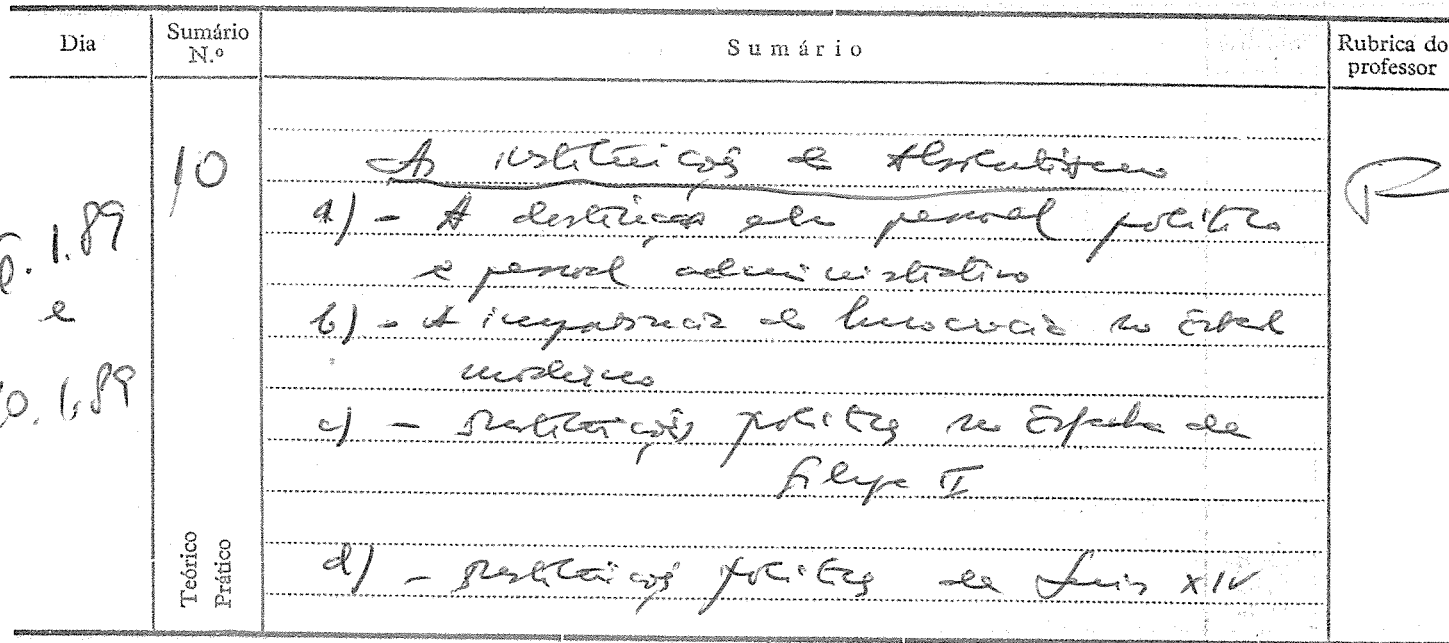 Dia
Sumário N.º
Sumário
Rubrica do professor
10
As instituições do Absolutismo
a) - A distinção entre pessoal político
e pessoal administrativo
b) - A importância da burocracia no Estado
moderno
c) - Instituições políticas na Espanha de
Filipe II
d) - Instituições políticas de Luís XIV
1.89
e
0.1.89
Teórico
Prático